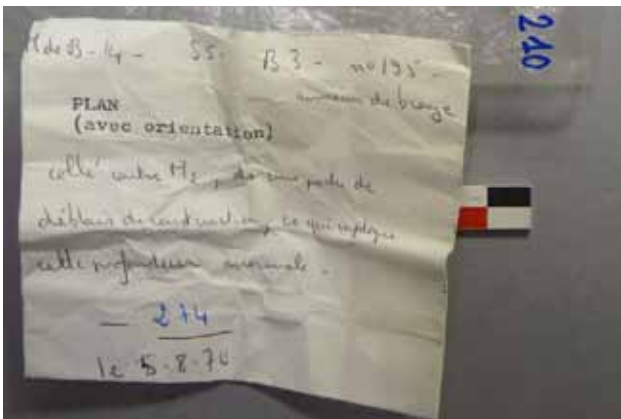 M de B - 14 - SS - B3 - no 195 -
anneau de bronze
PLAN
(avec orientation)
collé contre M2, dans une poche de
déblais de construction, ce qui explique
cette profondeur anormale.
- 274
le 5.8.70
210